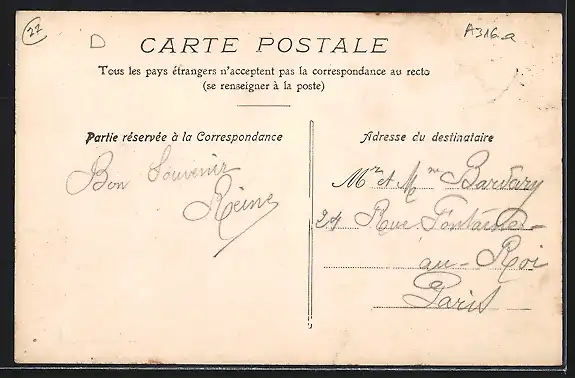 22
D
A316a
CARTE POSTALE
Tous les pays étrangers n'acceptent pas la correspondance au recto
(se renseigner à la poste)
Partie réservée à la Correspondance
Adresse du destinataire
Bon Souvenir
Reine
Mr et Mme Bardary
24 Rue Fontaine-
au-Roi
Paris